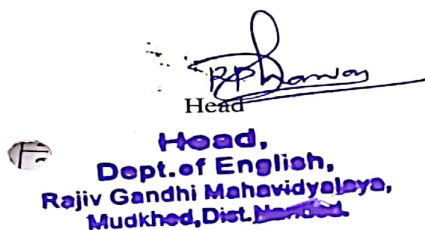 Head
Head,
Dept.of English,
Rajiv Gandhi Mahavidyalaya,
Mudkhed, Dist. Nanded.